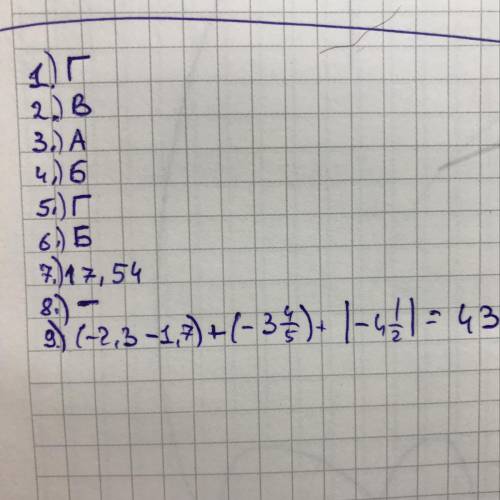 1.) Г
2.) В
3.) А
4.) б
5.) Г
6.) Б
7.) 17,54
8.) −
9.) (−2,3 −1,7) + (−3 4/5) + |−4 1/2| = 43